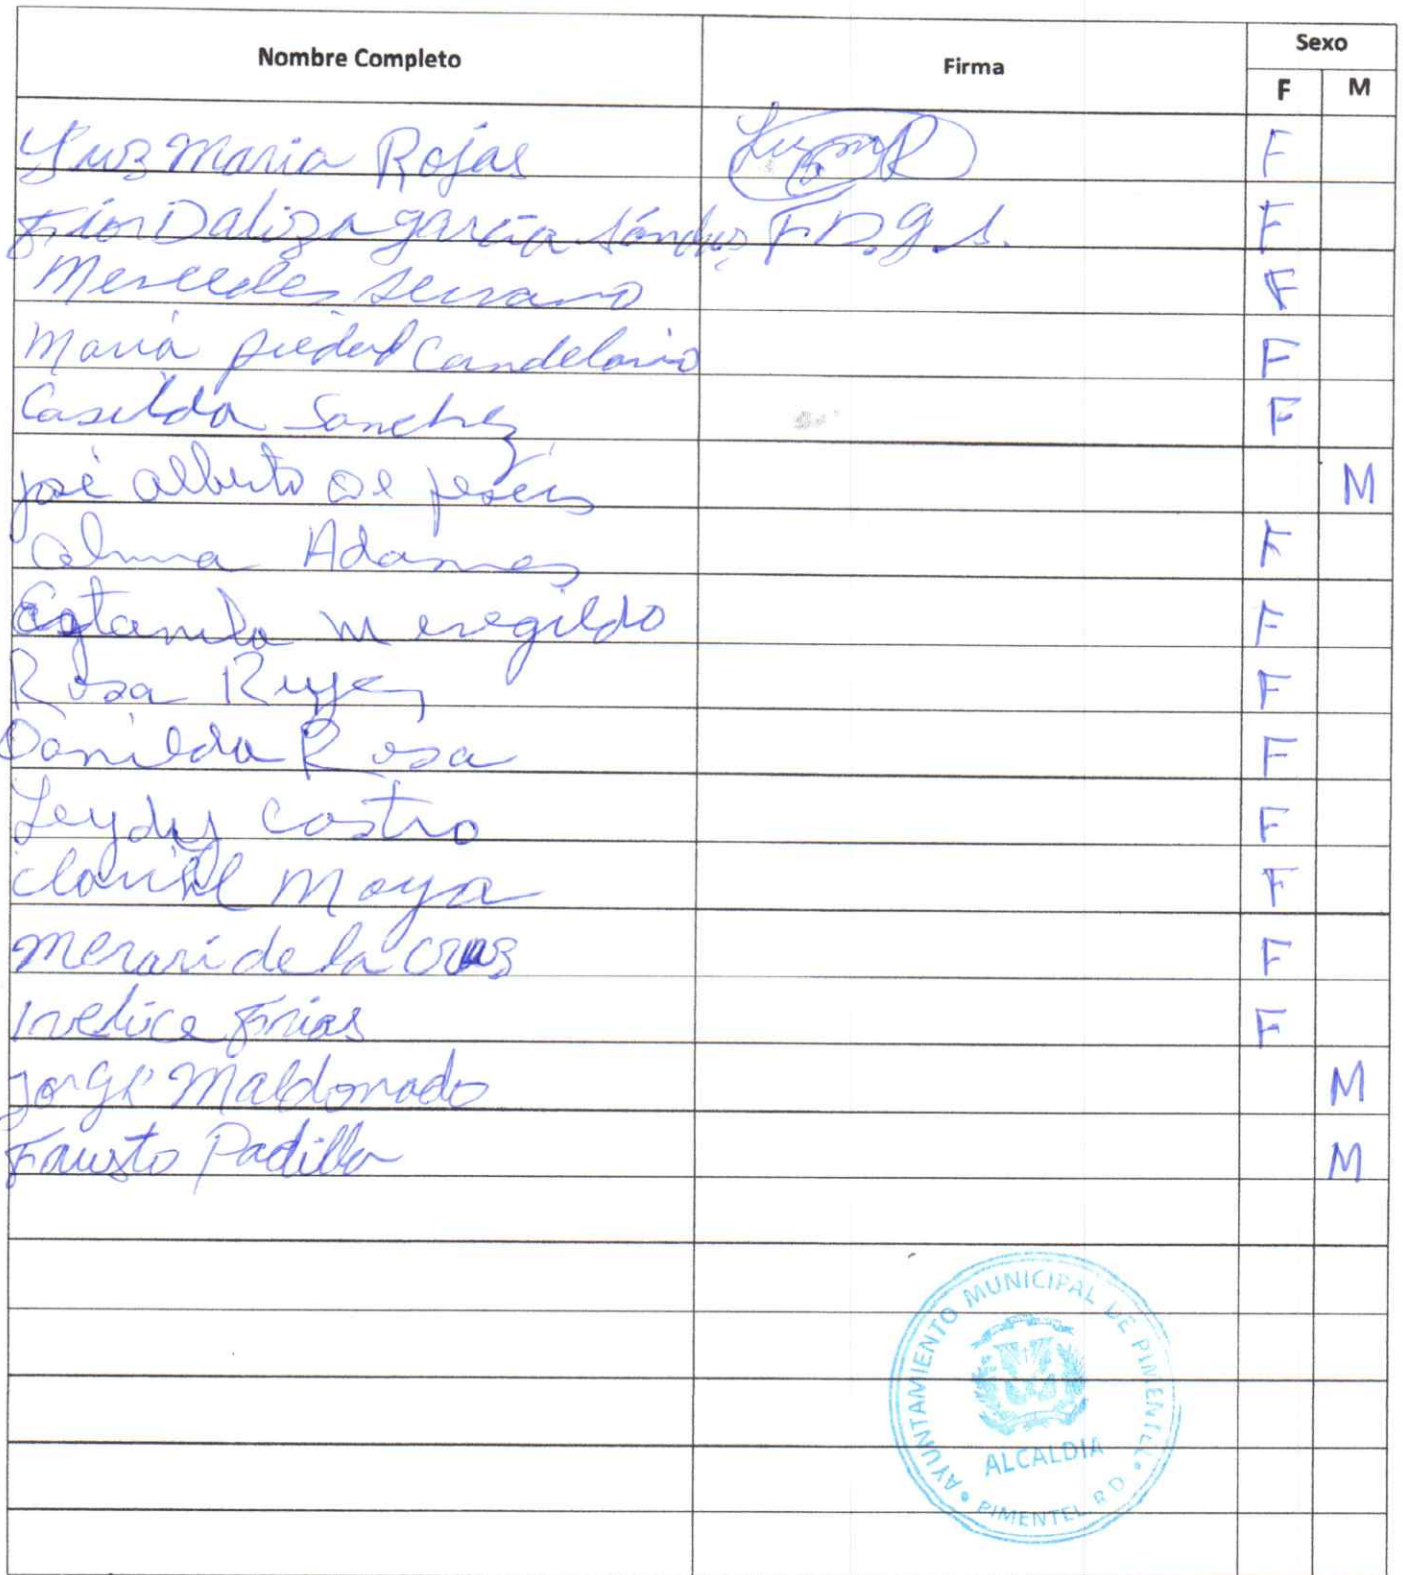 Nombre Completo Firma Sexo
F M
Luz Maria Rojas F
Fior Daliza garcía Sánchez F.D.g.S. F
Mercedes Serrano F
María piedad Candelario F
Casilda Sanchez F
josé alberto de jesús M
Adames F
Estanila Meregildo F
Rosa Reyes F
Danilda Rosa F
Leydy Castro F
Claribel Moya F
Merari de la Cruz F
Frias F
Jorge Maldonado M
Fausto Padilla M
AYUNTAMIENTO MUNICIPAL DE PIMENTEL
ALCALDIA
PIMENTEL R D